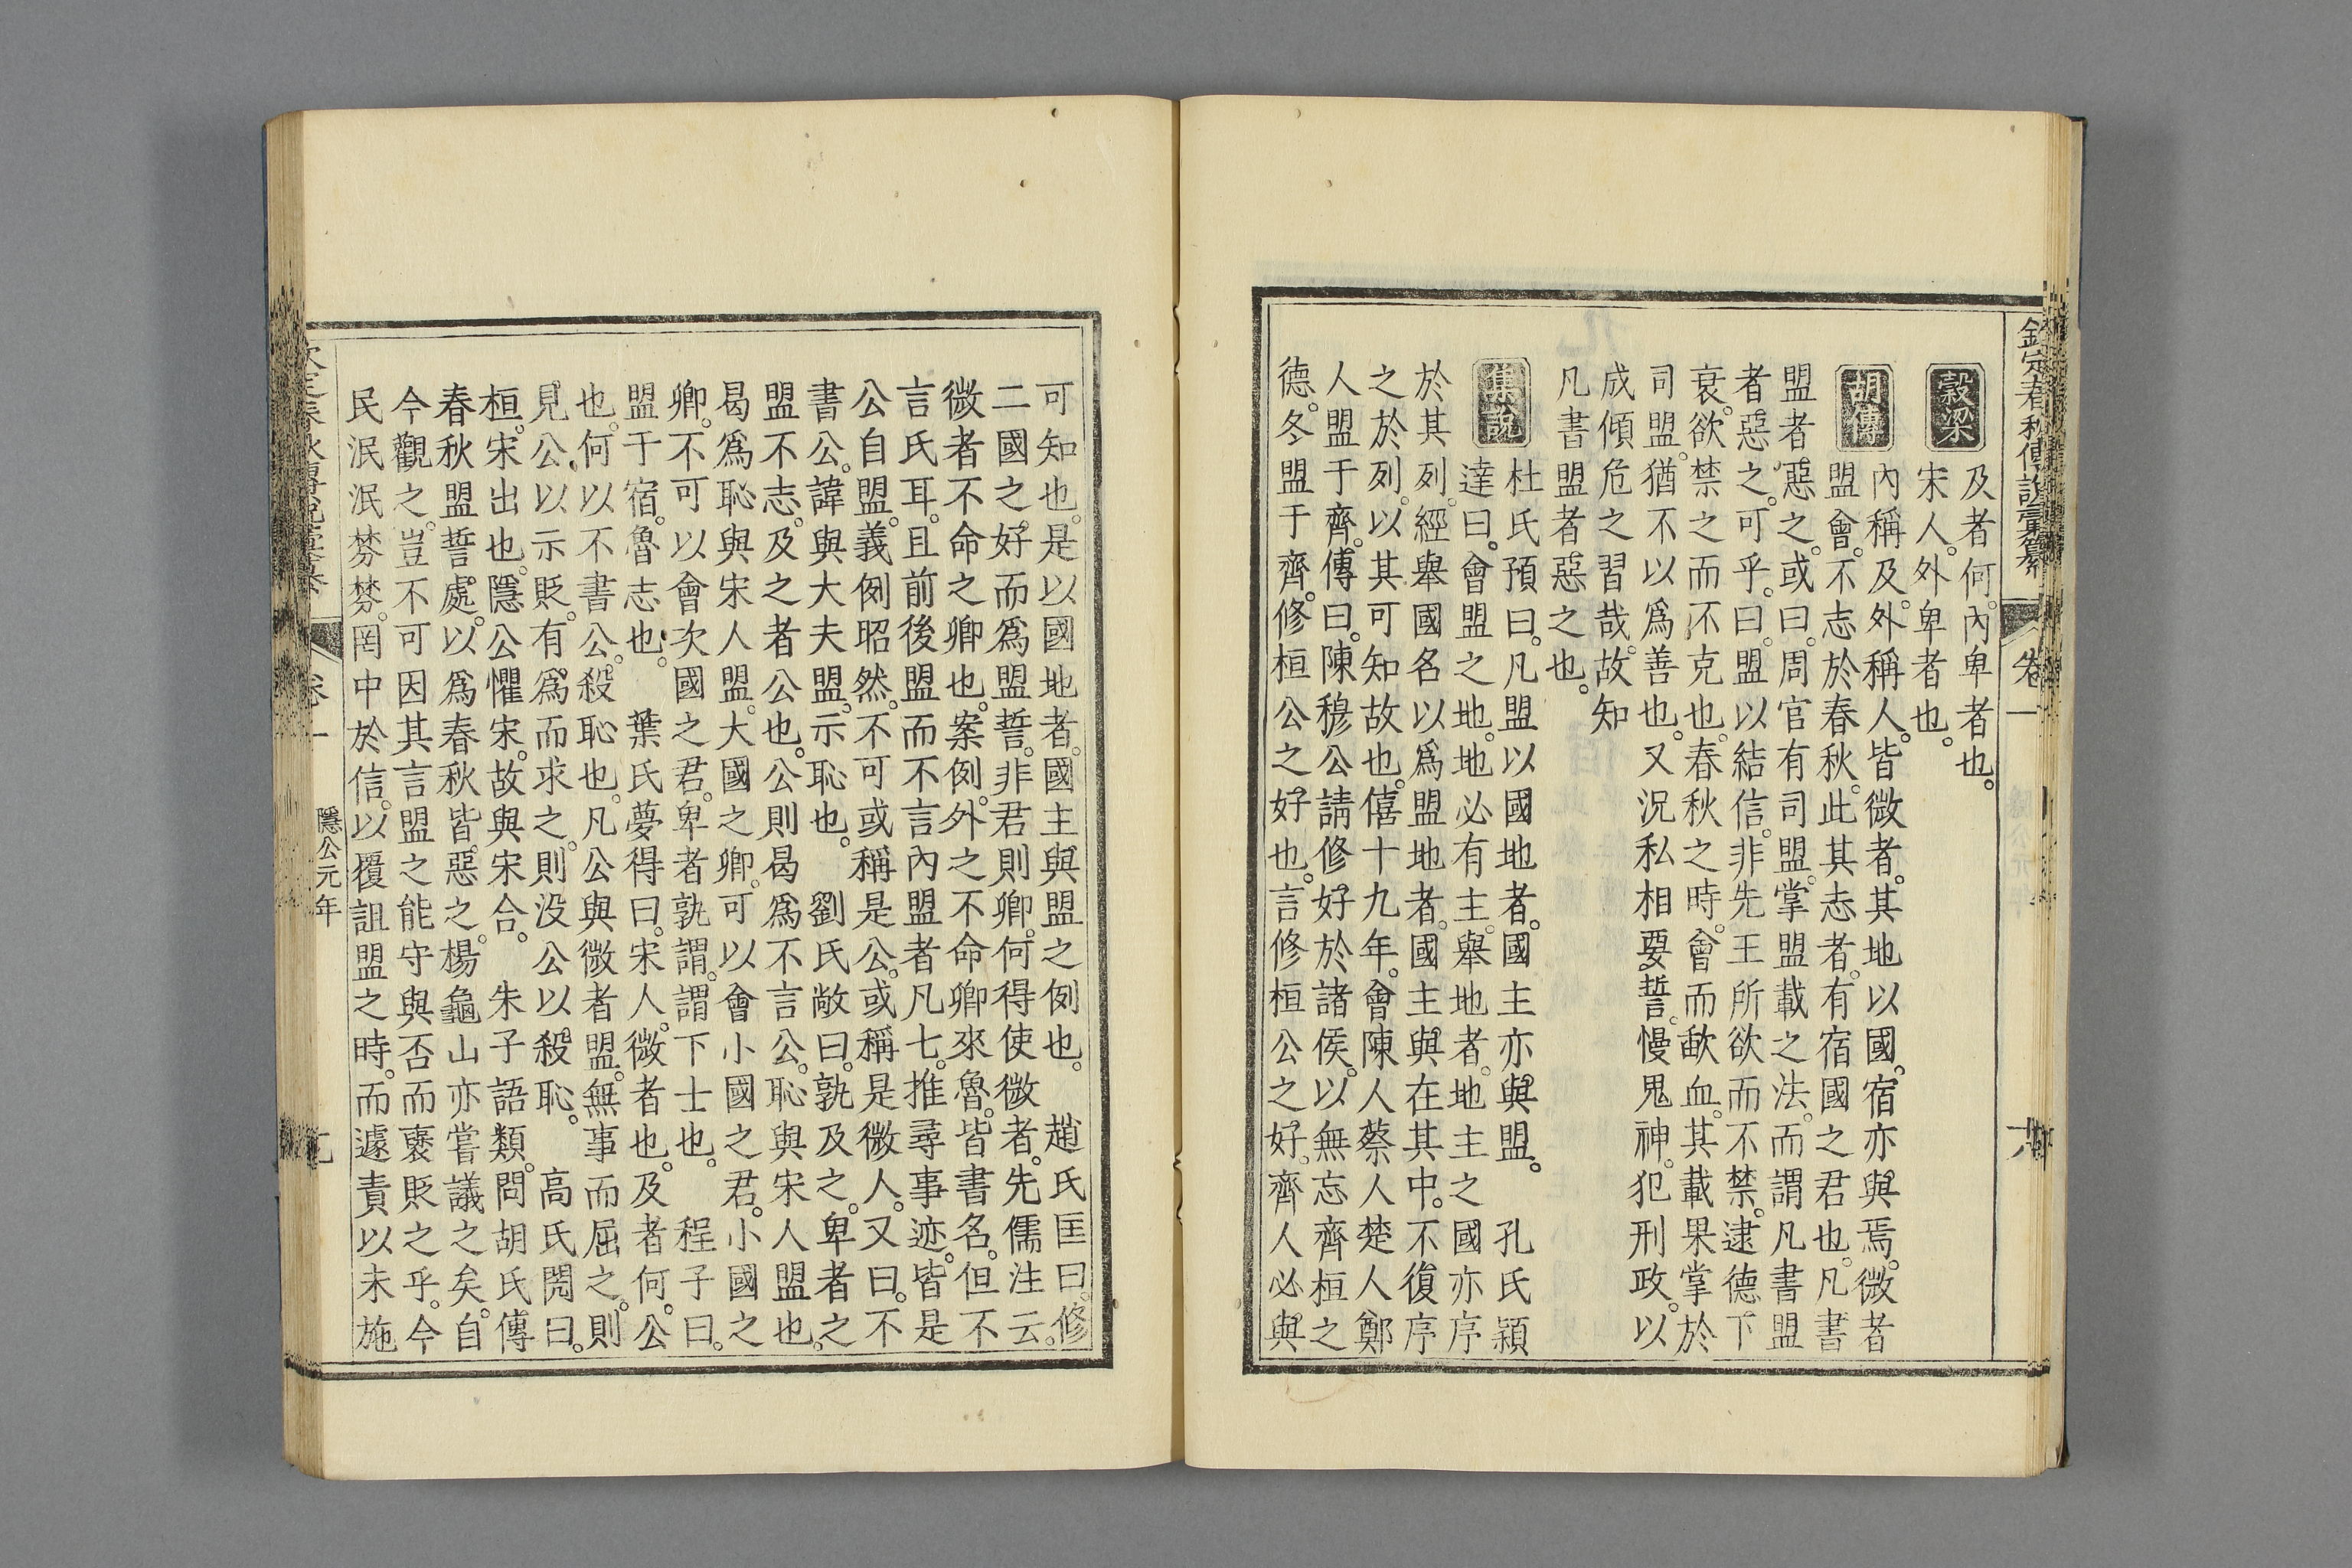 欽定春秋傳說彙纂 卷一
穀梁
及者何。內卑者也。
宋人。外卑者也。
胡傳
內稱及。外稱人。皆微者。其地以國。宿亦與焉。微者
盟會。不志於春秋。此其志者。有宿國之君也。凡書
盟者。惡之。或曰。周官有司盟。掌盟載之法。而謂凡書盟
者惡之。可乎。曰。盟以結信。非先王所欲而不禁。逮德下
衰。欲禁之而不克也。春秋之時。會而歃血。其載果掌於
司盟。猶不以爲善也。又況私相要誓。慢鬼神。犯刑政。以
成傾危之習哉。故知
凡書盟者惡之也。
集說
杜氏預曰。凡盟以國地者。國主亦與盟。 孔氏穎
達曰。會盟之地。地必有主。舉地者。地主之國亦序
於其列。經舉國名以爲盟地者。國主與在其中。不復序
之於列。以其可知故也。僖十九年。會陳人蔡人楚人鄭
人盟于齊。傳曰。陳穆公請修好於諸侯。以無忘齊桓之
德。冬。盟于齊。修桓公之好也。言修桓公之好。齊人必與
可知也。是以國地者。國主與盟之例也。 趙氏匡曰。修
二國之好而爲盟誓。非君則卿。何得使微者。先儒注云。
微者不命之卿也。案例。外之不命卿來魯。皆書名。但不
言氏耳。且前後盟而不言內盟者凡七。推尋事迹。皆是
公自盟。義例昭然。不可或稱是公。或稱是微人。又曰。不
書公。諱與大夫盟。示恥也。 劉氏敞曰。孰及之。卑者之
盟不志。及之者公也。公則曷爲不言公。恥與宋人盟也。
曷爲恥與宋人盟。大國之卿。可以會小國之君。小國之
卿。不可以會次國之君。卑者孰謂。謂下士也。 程子曰。
盟于宿。魯志也。 葉氏夢得曰。宋人。微者也。及者何。公
也。何以不書公。殺恥也。凡公與微者盟。無事而屈之。則
見公。以示貶。有爲而求之。則没公以殺恥。 高氏閌曰。
桓。宋出也。隱公懼宋。故與宋合。 朱子語類。問胡氏傳
春秋盟誓處。以爲春秋皆惡之。楊龜山亦嘗議之矣。自
今觀之。豈不可因其言盟之能守與否而襃貶之乎。今
民泯泯棼棼。罔中於信。以覆詛盟之時。而遽責以未施
隱公元年